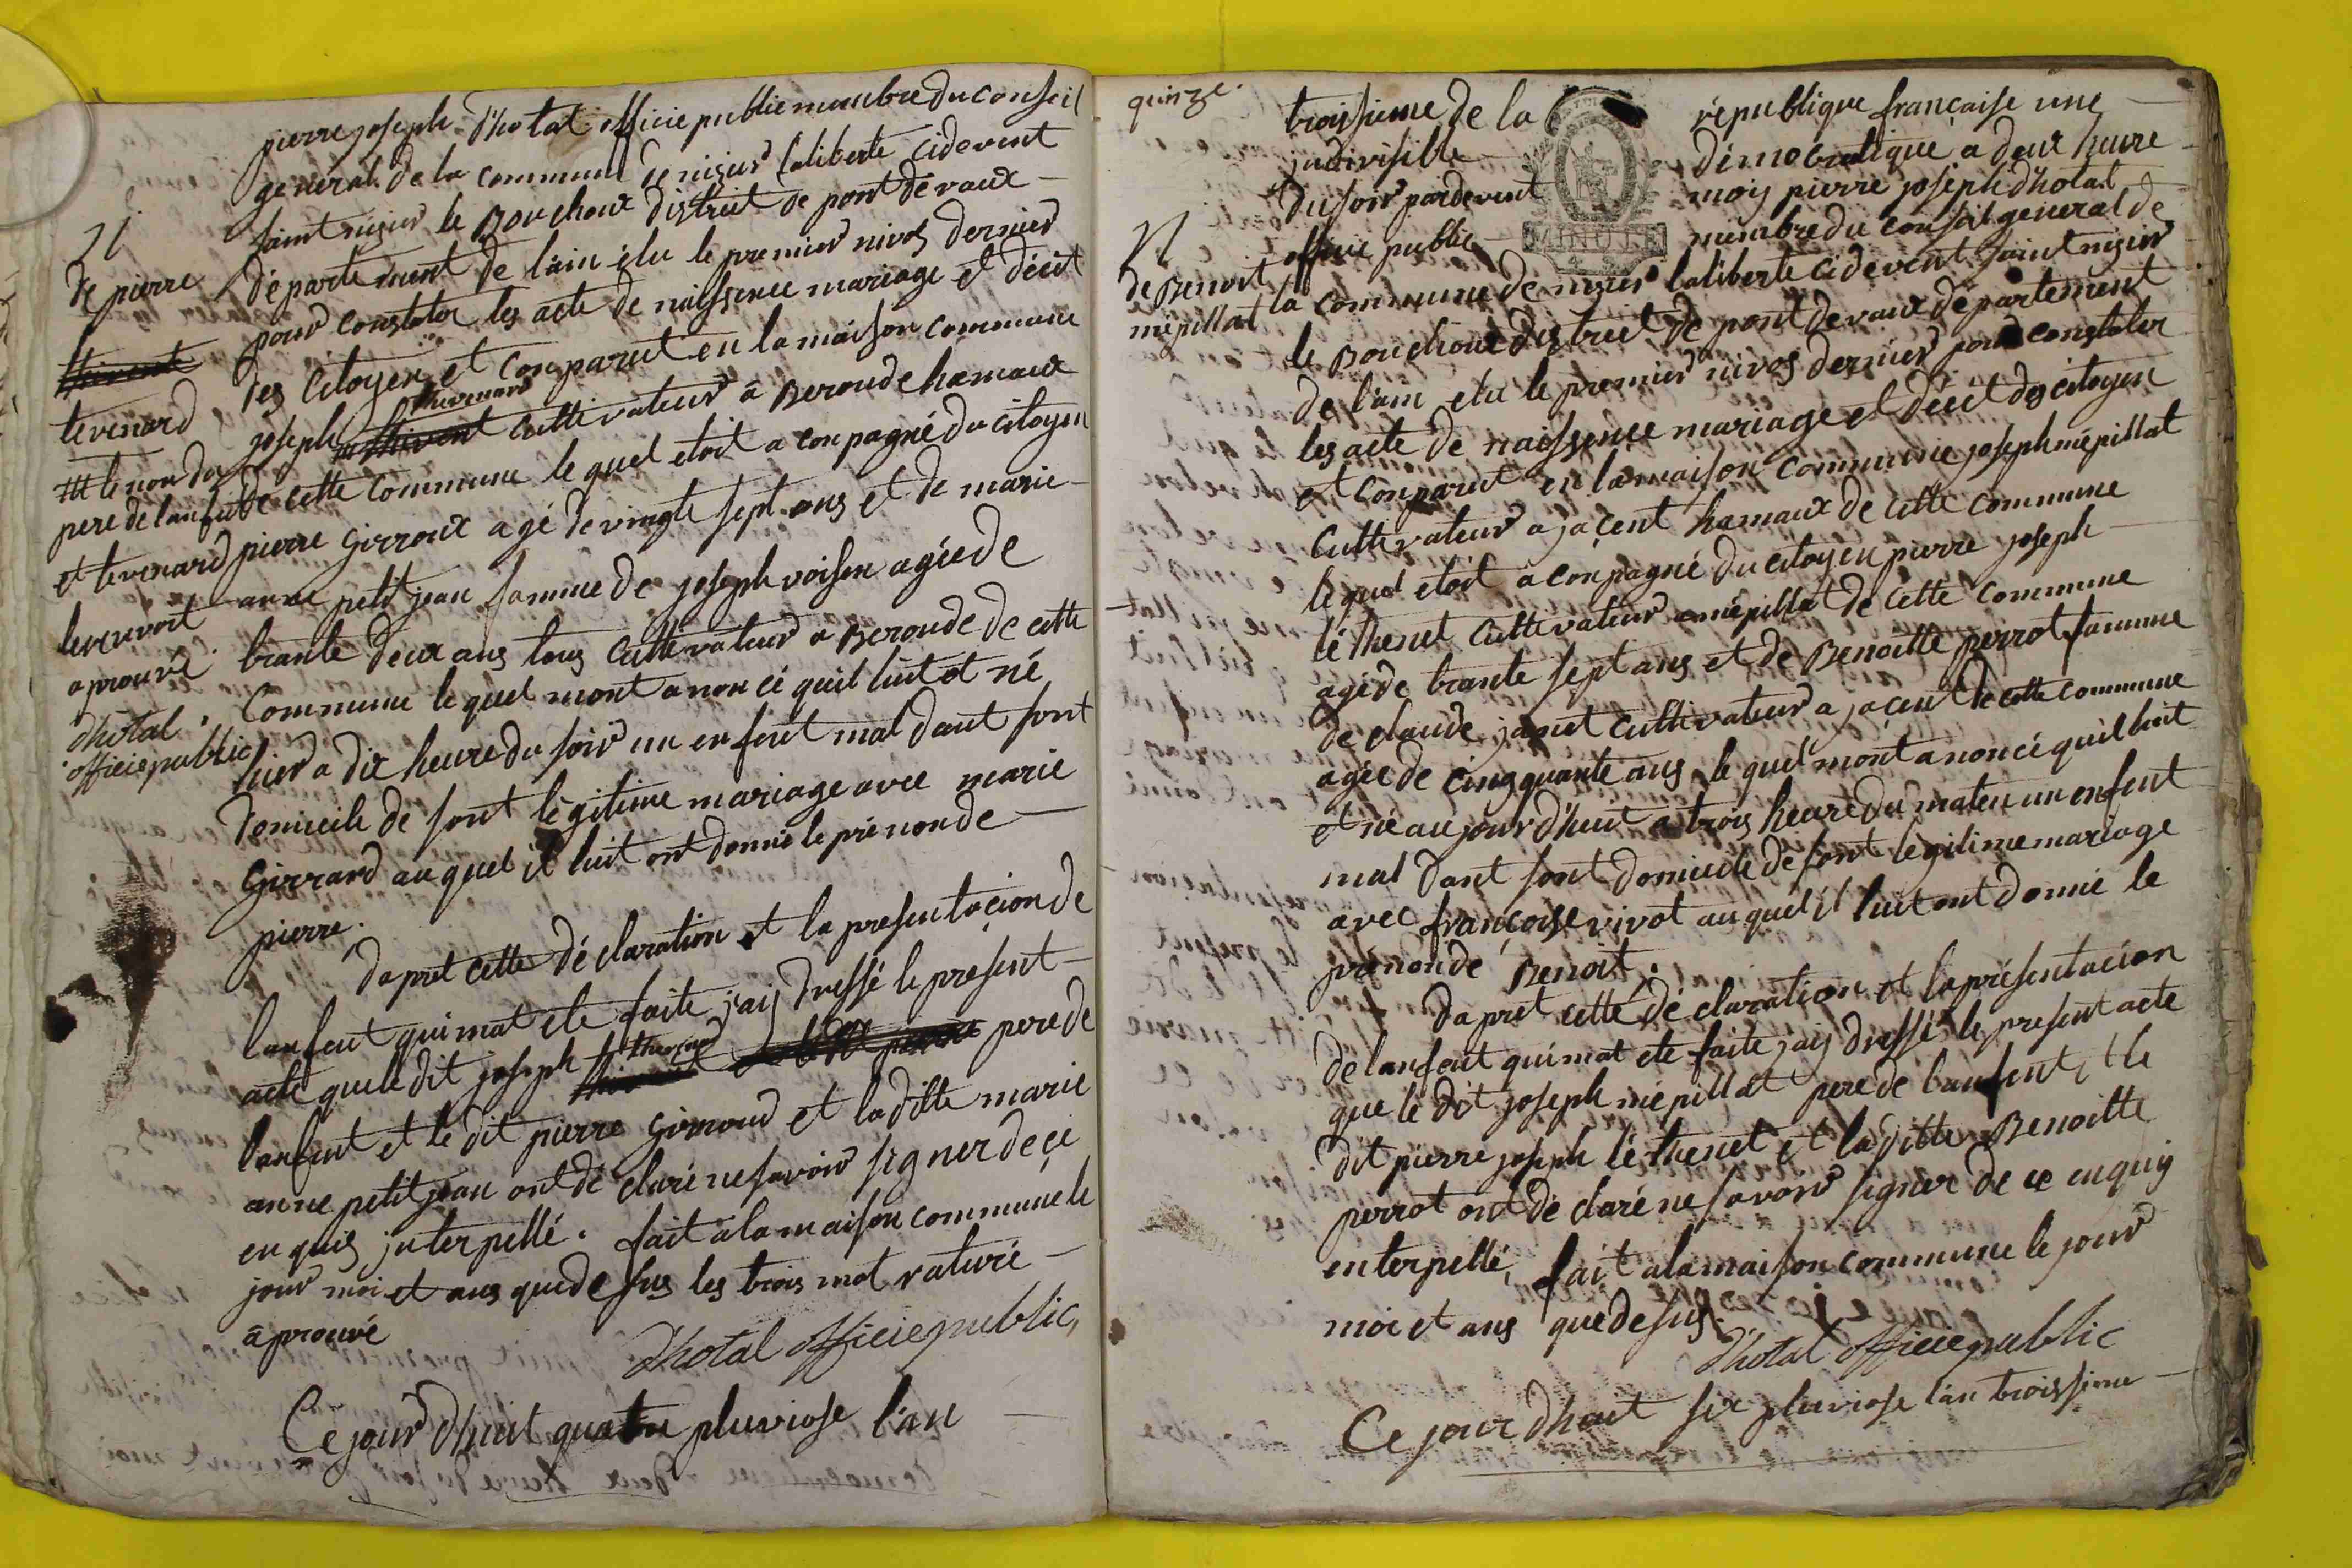 pierre joseph Dhotal officie public mambre du conseil
general de la commune de nisier laliberte cidevent
saint nisier le Bouchoux district de pont de vaux
département de lain élu le premier nivos dernier
pour constater les acte de naissence mariage et décit
des citoyen et conparut en la maison commune
thevenard
joseph thivent cultivateur a Beroude hamaux
de cette commune le quel etoit a conpagné du citoyen
pierre Girroux agé de vingte sept ans et de marie
anne petit jean famme de joseph voisin agée de
trante deux ans tous cultivateur a Beroude de cette
commune le quel mont anoncé quil luit et né
hier a dix heure du soir un enfent mal dant sont
domicile de sont légitime mariage avec marie
Girrard au quel il luit ont donné le prénon de
pierre.
dapret cette déclaration et la presentacion de
lanfent qui mat ete faite jaij dressé le present
thevenard
acte que le dit joseph thivent pere de
lanfent et le dit pierre Girroud et la ditte marie
anne petit jean ont dé claré ne savoir signer de ce
en quis juterpellé. fait a la maison commune le
jour moi et ans que de sus les trois mot raturé
aprouvé
Dhotal officie public,
Ce jour dhuit quatre pluviose lan
N
de pierre
thivent
tevenard
le non du
pere de lanfent
et tevenard
le renvoit
aprouvé
dhotal
officie public
quinze.
troissieme de la république française une
jndivisible démocratique a deux heure
du soir pardevent moij pierre joseph dhotal
officie public mambre du conseil general de
la commune de nisier laliberte cidevent saint nisier
le Bouchoux district de pont de vaux département
de lain elu le premier nivos dernier pour constater
les acte de naissence mariage et décit des citoyen
et conparut en la maison commune joseph mépillat
cultivateur a jacent hamaux de cette commune
le quel etoit a conpagné du citoyen pierre joseph
léthenet cultivateur a mépillat de cette commune
agé de trante sept ans et de Benoitte perrot famme
de claude janet cultivateur a jacent de cette commune
agée de cinqquante ans le quel mont anoncé quil luit
et né aujour dhuit a trois heure du maten un enfent
mal dant sont domicile de sont legitime mariage
avec françoise vivot au quel il luit ont donné le
prénon de Benoit.
dapret cette déclaration et la présentacion
de lanfent qui mat ete faite jaij dressé le present acte
que le dit joseph mépillat pere de lanfent, et le
dit pierre joseph léthenet et la ditte Benoitte
perrot ont dé claré ne savoir signer de ce en quij
enterpellé, fait a la maison commune le jour
moi et ans que de sus.
dhotal officie public
Ce jour dhuit six pluviose lan troissieme
N
de Benoit
mépillat
MINUTE